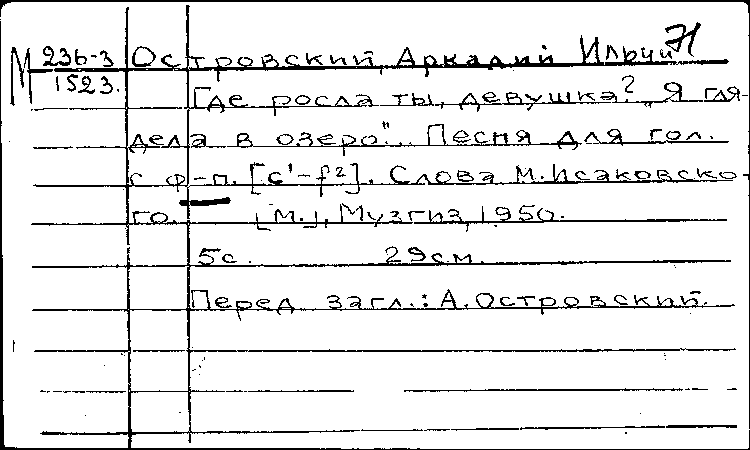 М 236-3 Островский, Аркадий Ильич Н
1523.
Где росла ты, девушка? „Я гля-
дела в озеро". Песня для гол.
с ф-п. [c¹-f²]. Слова М.Исаковско-
го. [М.], Музгиз, 1950.
5с. 29см.
Перед загл.: А.Островский.